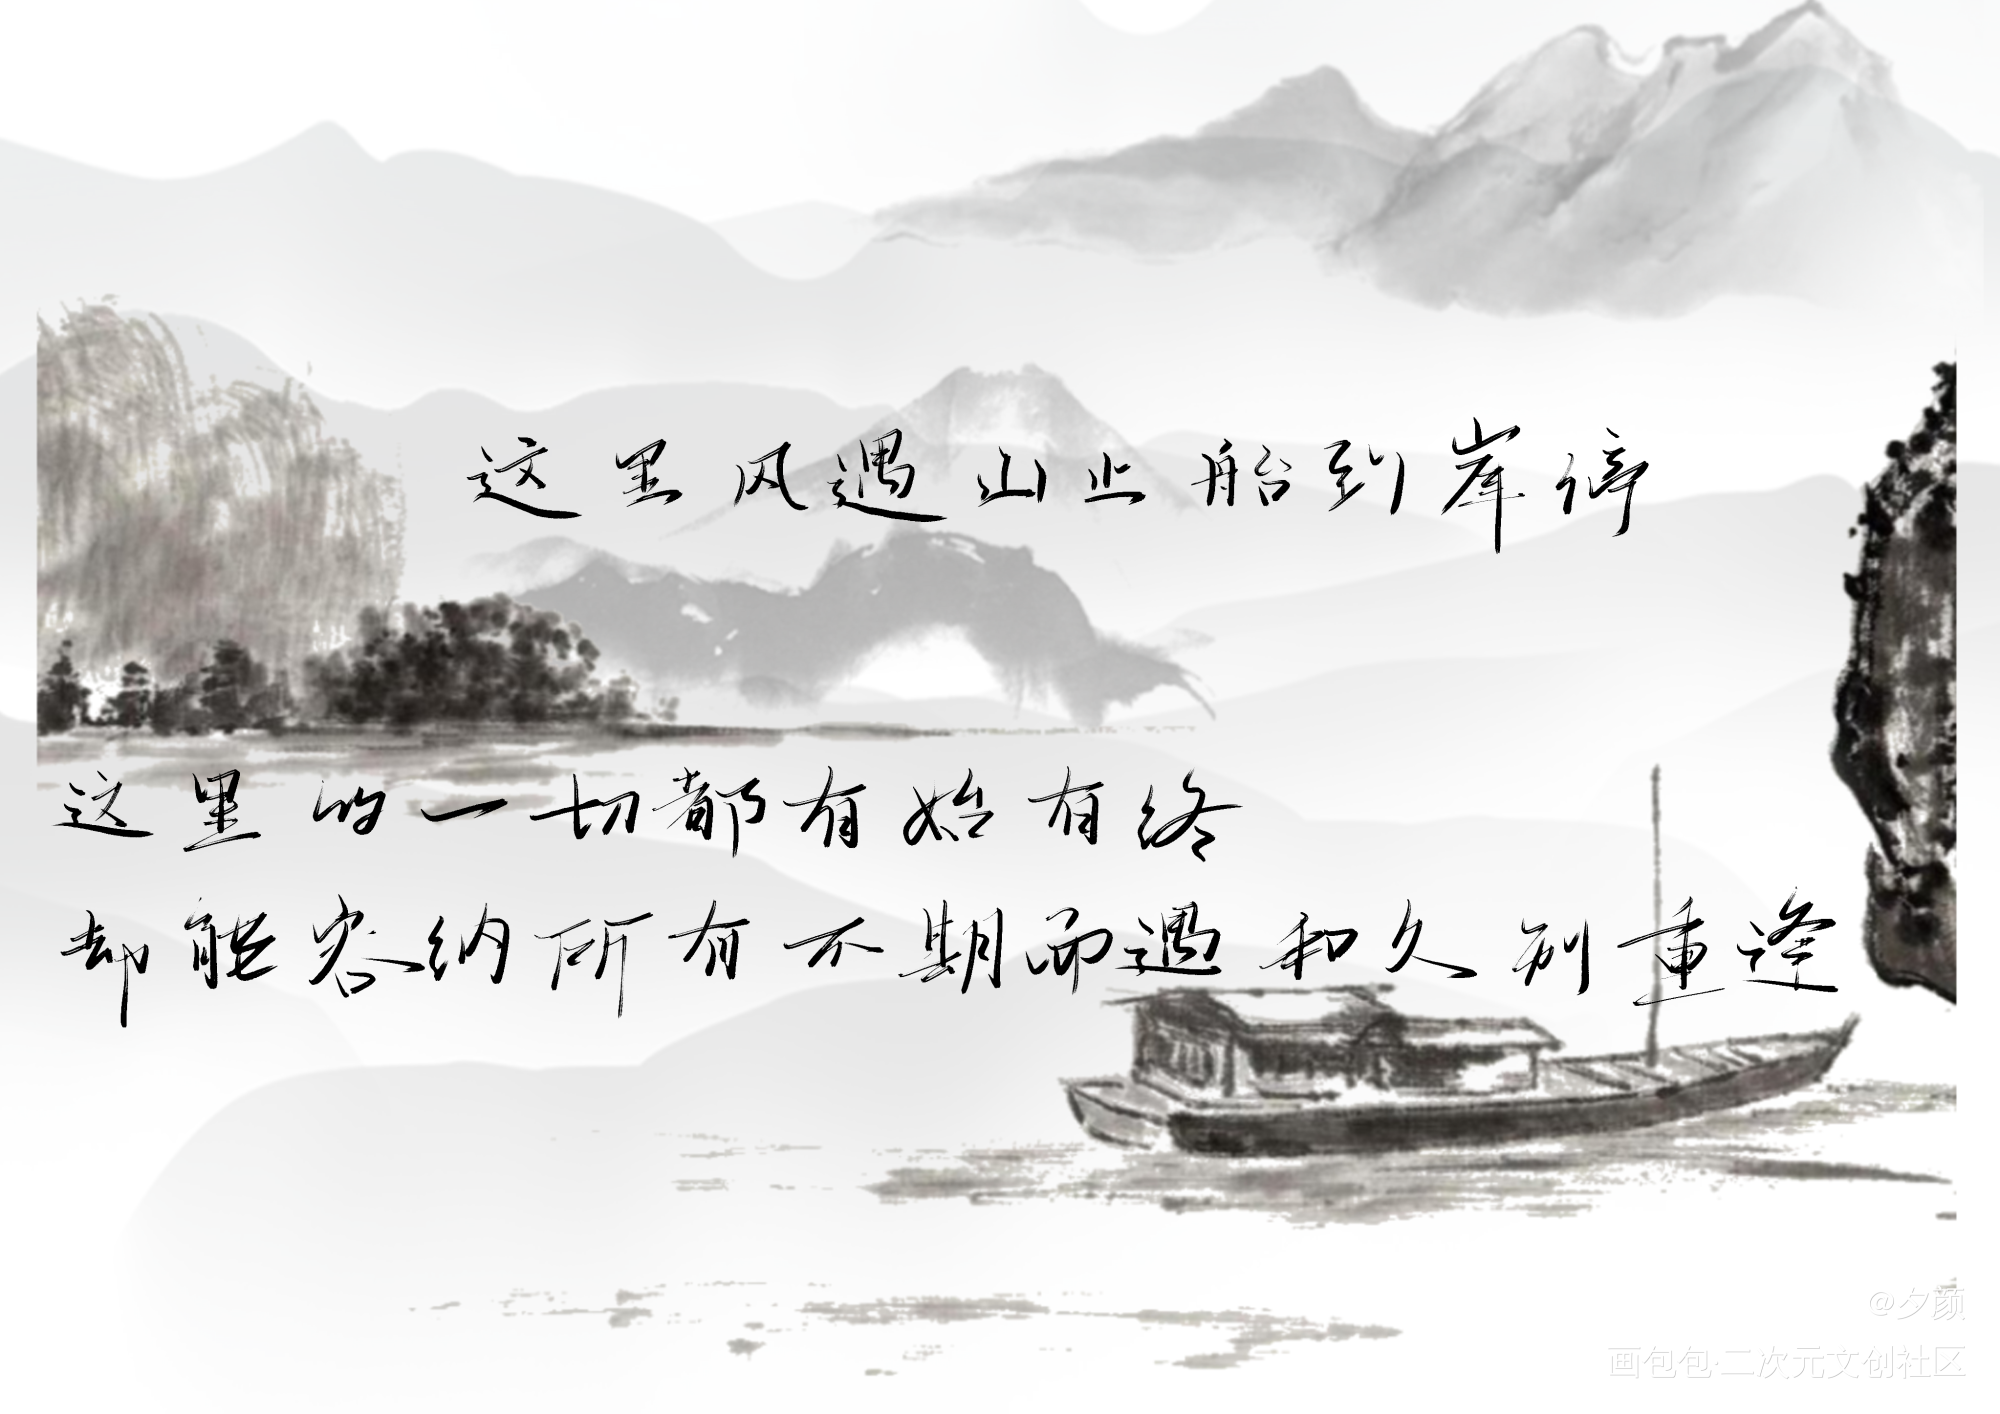 这里风遇山止船到岸停
这里的一切都有始有终
却能容纳所有不期而遇和久别重逢
@夕颜
画包包·二次元文创社区